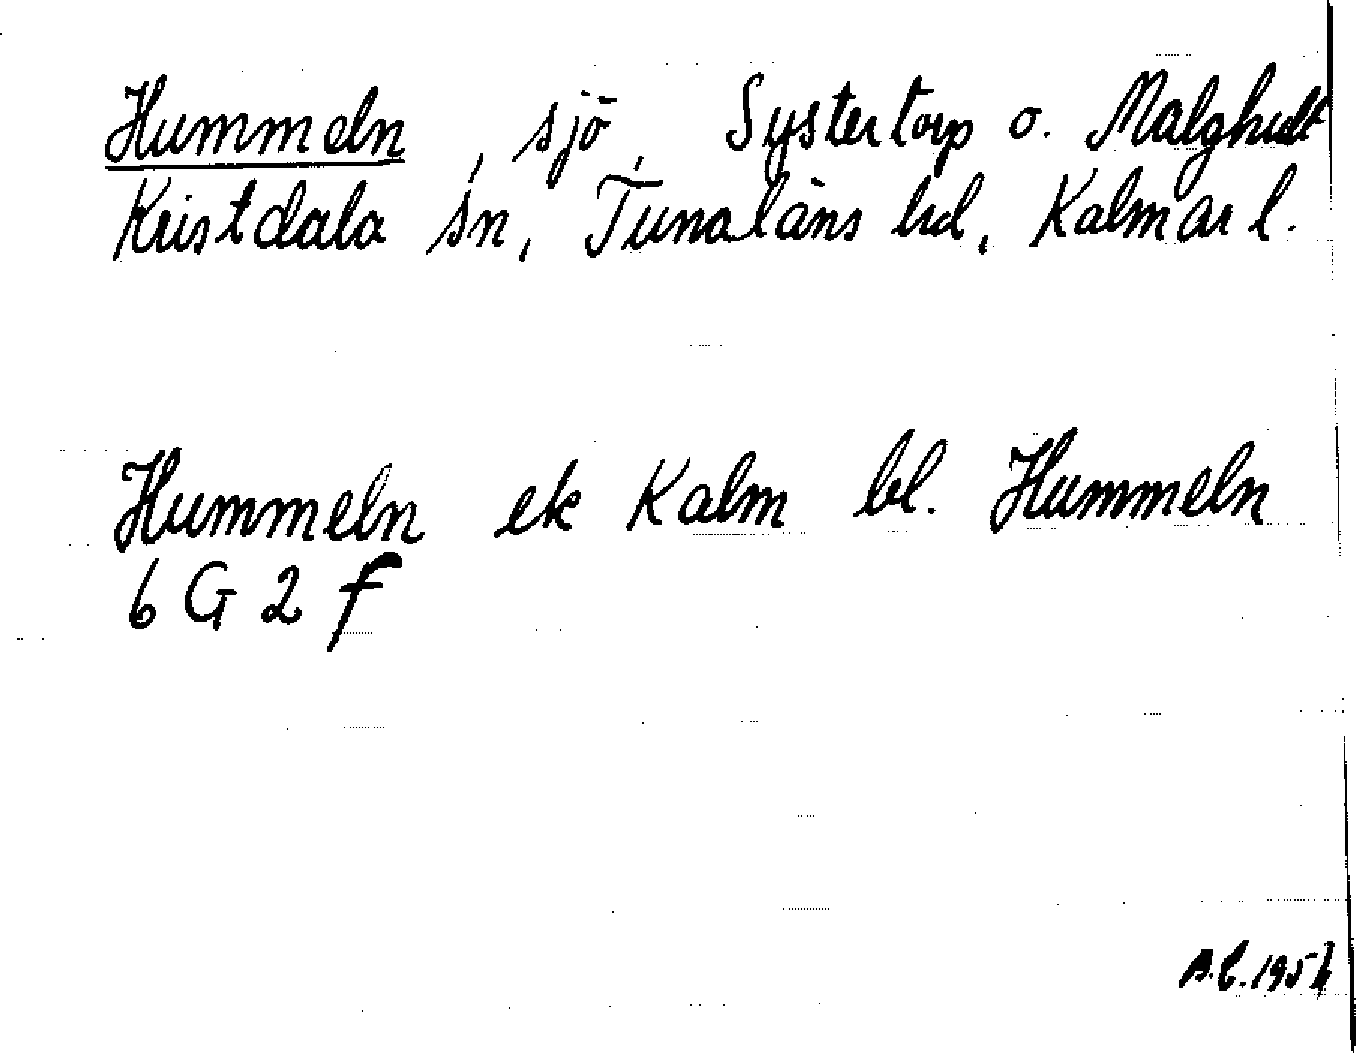 Hummeln, sjö, Systertorp o. Malghult
Kristdala sn, Tunaläns hd, Kalmar l.
Hummeln ek Kalm bl. Hummeln
6 G 2 f